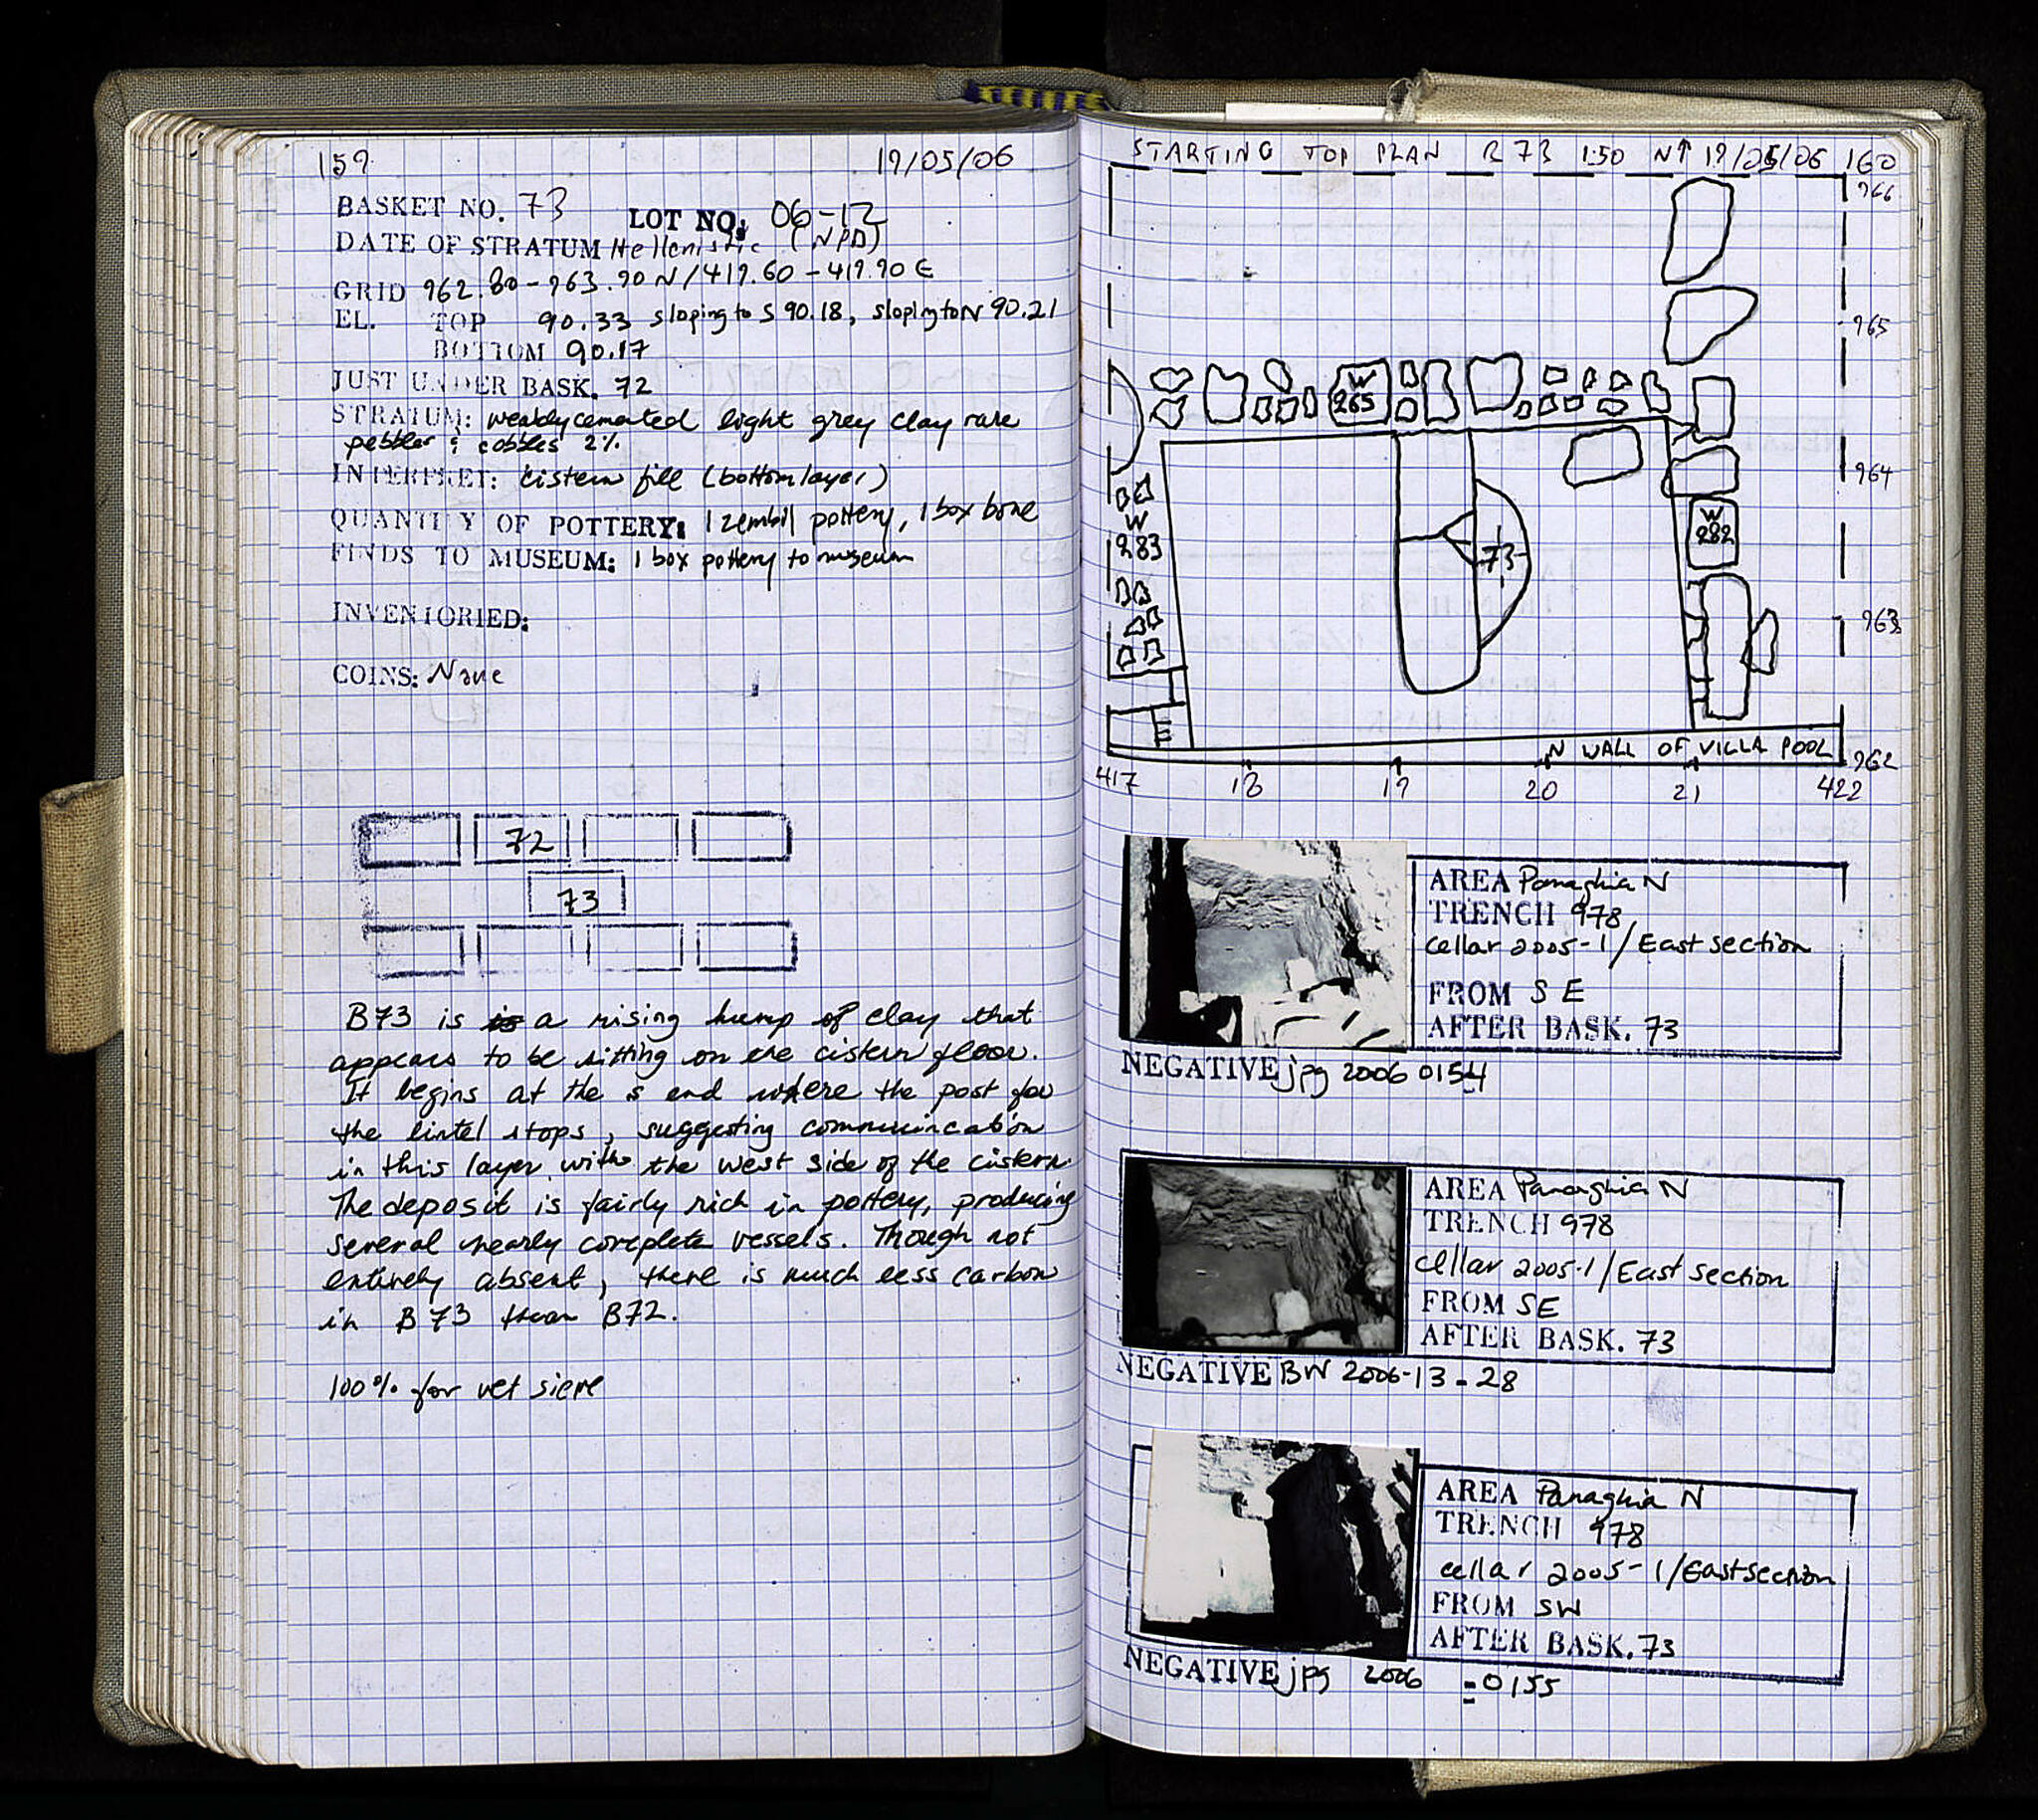 159 19/05/06
BASKET NO. 73 LOT NO: 06-12
DATE OF STRATUM Hellenistic (NPD)
GRID 962.80-963.90 N/419.60-419.90 E
EL. TOP 90.33 sloping to S 90.18, sloping to N 90.21
BOTTOM 90.17
JUST UNDER BASK. 72
STRATUM: weakly cemented light grey clay rare
pebbles & cobbles 2%
INTERPRET: cistern fill (bottom layer)
QUANTITY OF POTTERY: 1 zembil pottery, 1 box bone
FINDS TO MUSEUM: 1 box pottery to museum
INVENTORIED:
COINS: None
72
73
B73 is is a rising hump of clay that
appears to be sitting on the cistern floor.
It begins at the s end where the post for
the lintel stops, suggesting communication
in this layer with the west side of the cistern.
The deposit is fairly rich in pottery, producing
several nearly complete vessels. Though not
entirely absent, there is much less carbon
in B73 than B72.
100% for wet sieve
STARTING TOP PLAN B73 1:50 N↑ 19/05/06 160
966
965
W
265
964
W
283
73
W
282
963
N WALL OF VILLA POOL
962
417 18 19 20 21 422
AREA Panaghia N
TRENCH 978
cellar 2005-1/East section
FROM SE
AFTER BASK. 73
NEGATIVE jpg 2006 0154
AREA Panaghia N
TRENCH 978
cellar 2005-1/East section
FROM SE
AFTER BASK. 73
NEGATIVE BW 2006-13-28
AREA Panaghia N
TRENCH 978
cellar 2005-1/East section
FROM SW
AFTER BASK. 73
NEGATIVE jpg 2006 -0155